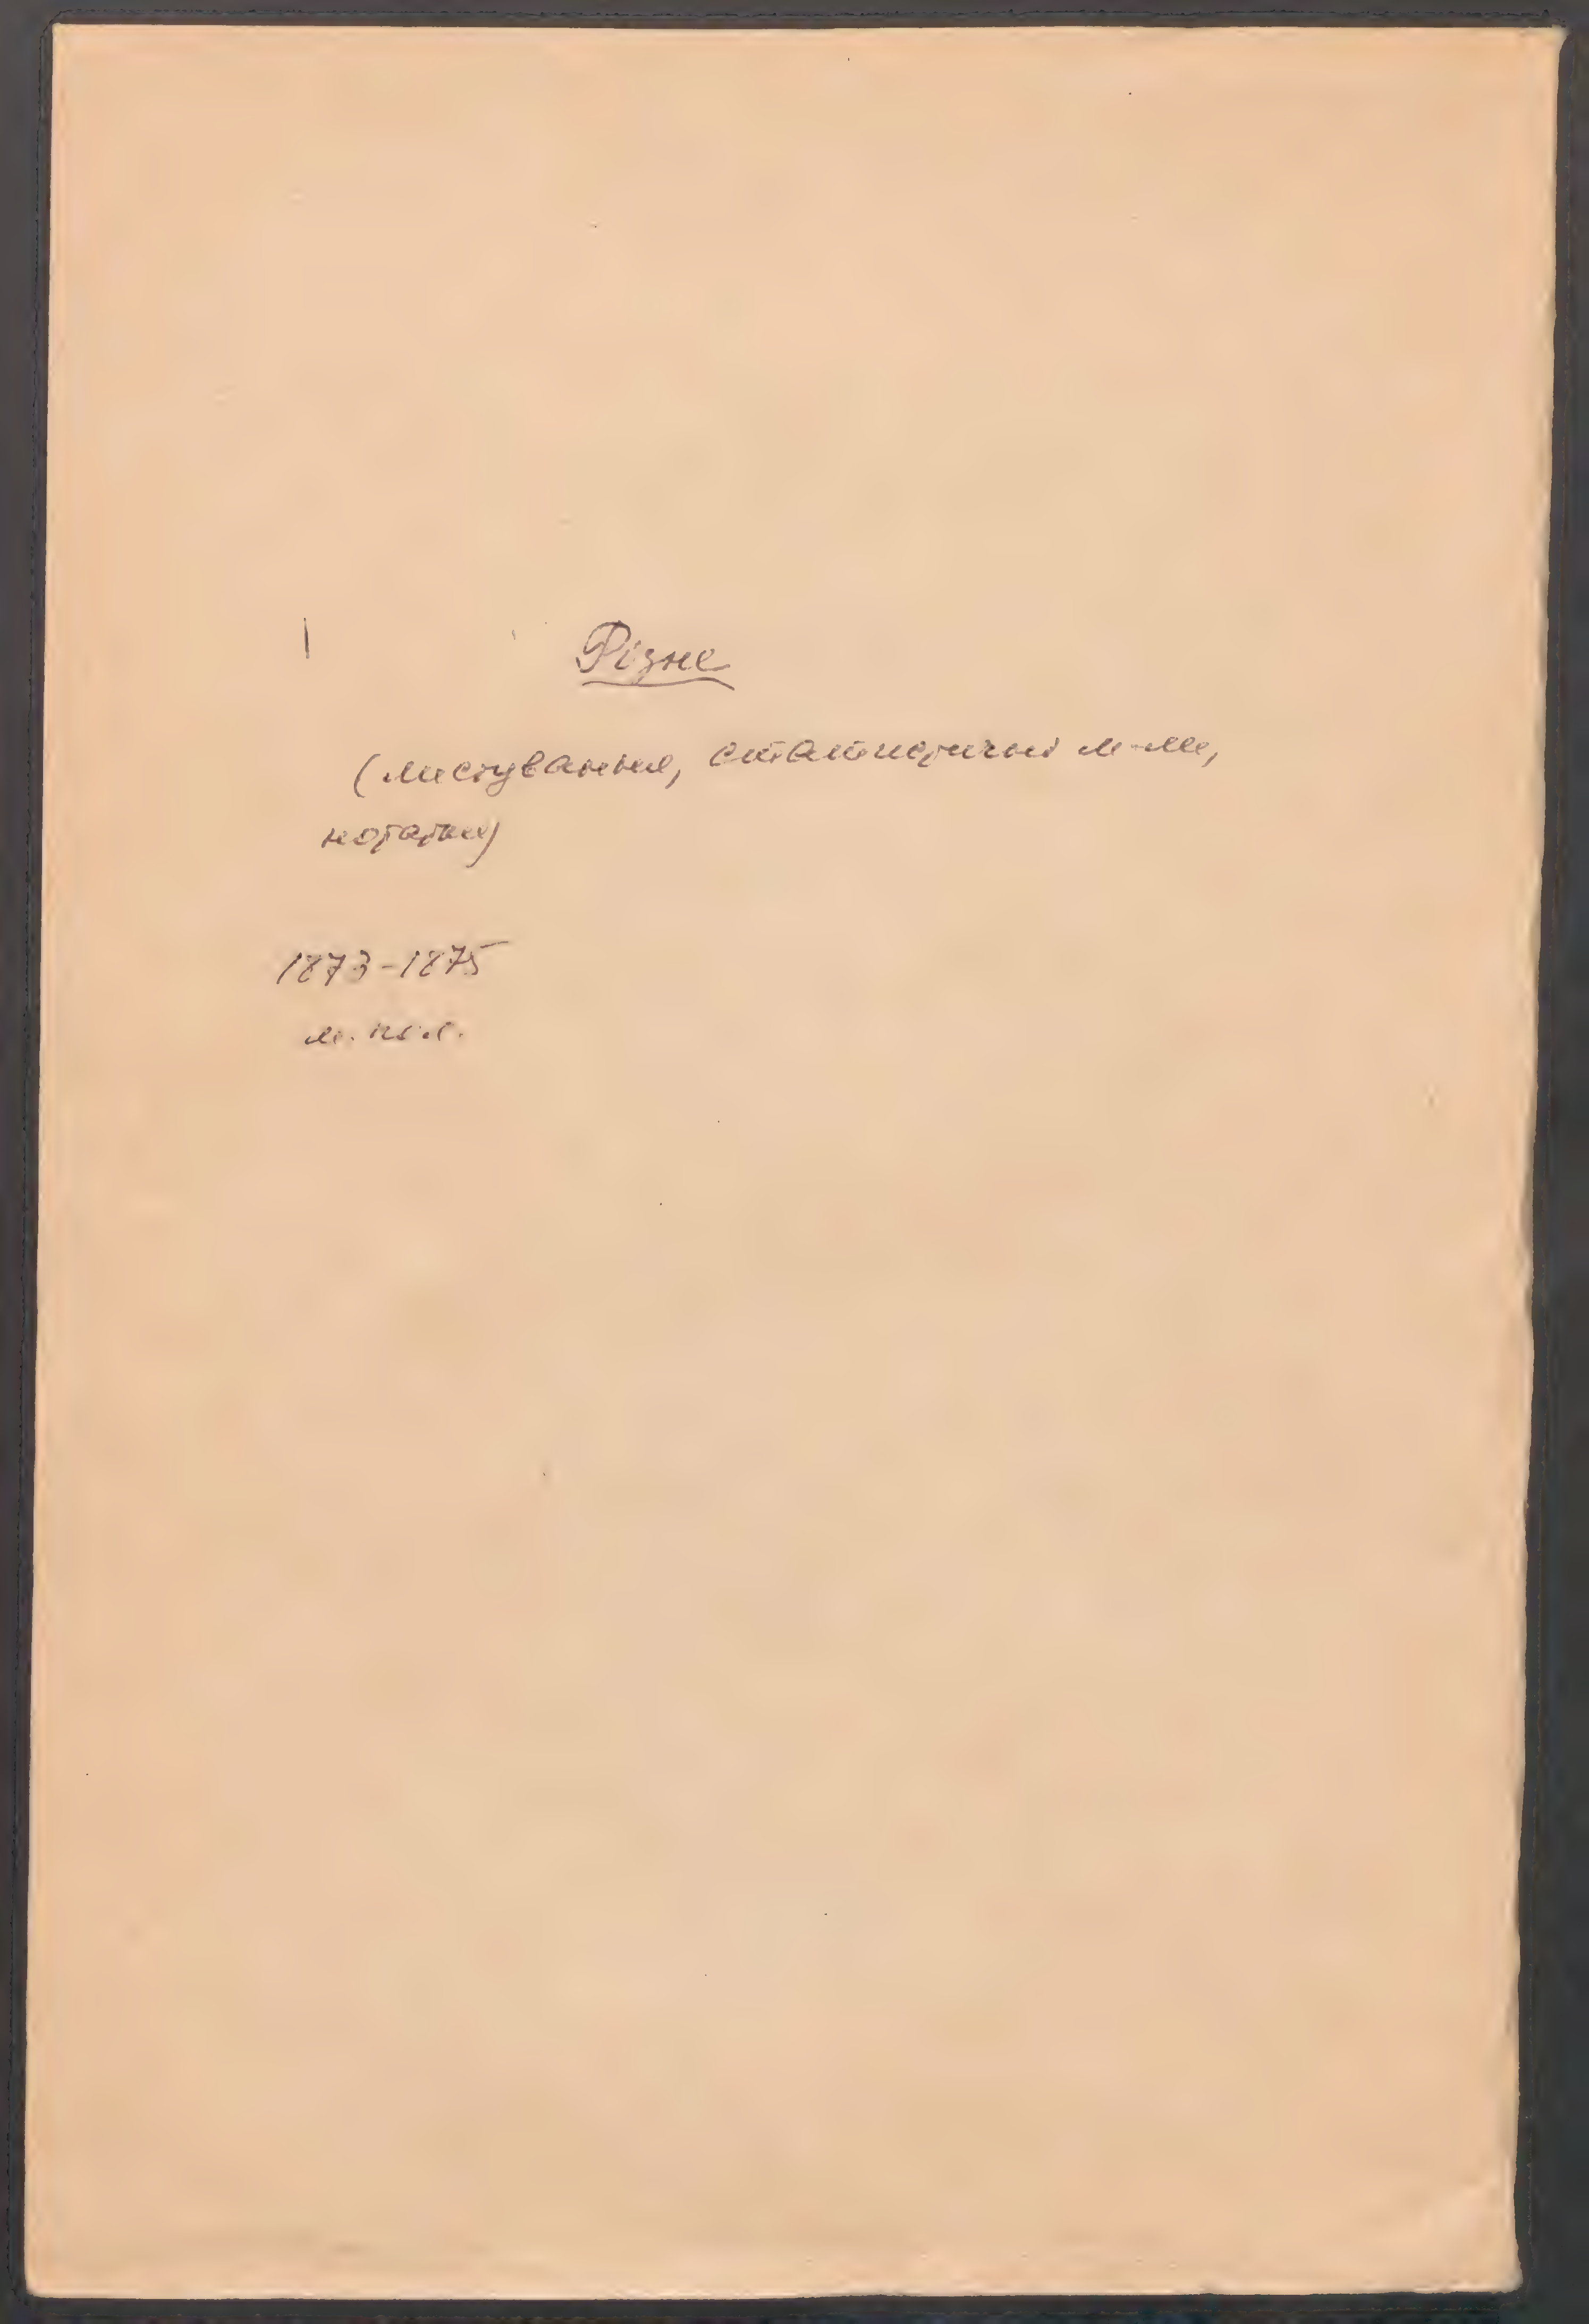 Різне
(листування, статистичні м-ли,
нотатки)
1873-1875